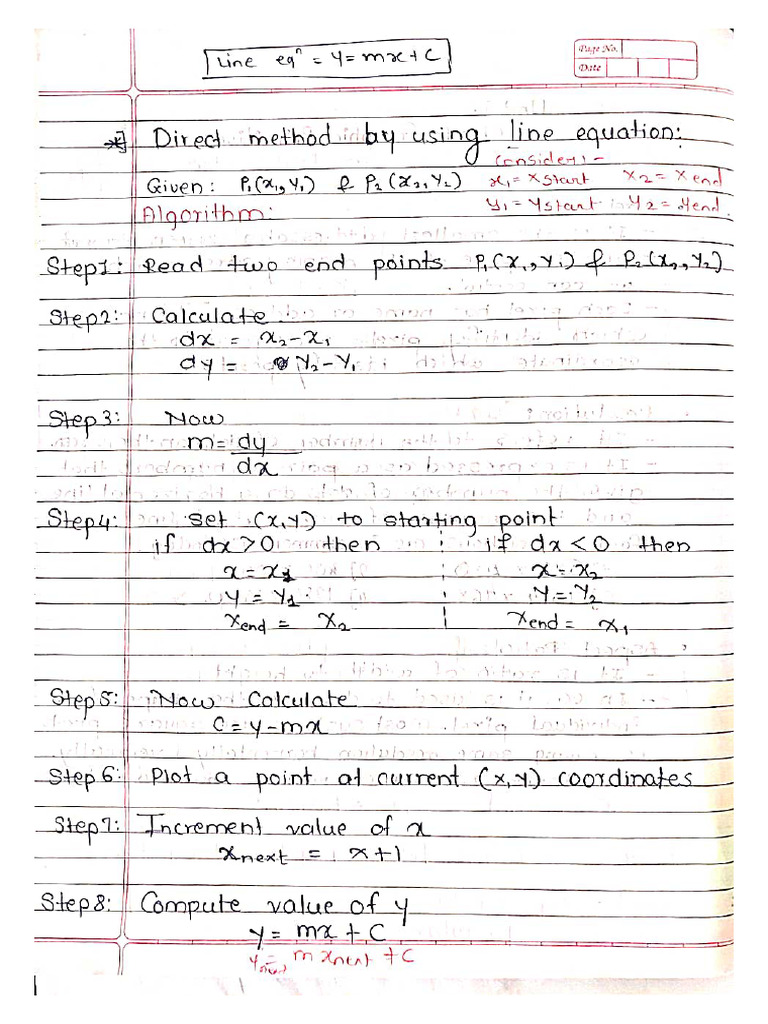 Line eqⁿ = y = mx + C
Page No.
Date
Direct method by using line equation:
Consider:-
Given: P₁(x₁, y₁) & P₂(x₂, y₂) x₁ = xstart x₂ = xend
Algorithm: y₁ = ystart y₂ = yend
Step1: Read two end points P₁(x₁, y₁) & P₂(x₂, y₂)
Step2: Calculate
dx = x₂ - x₁
dy = y₂ - y₁
Step3: Now
m = dy
dx
Step4: set (x, y) to starting point
if dx > 0 then if dx < 0 then
x = x₁ x = x₂
y = y₁ y = y₂
xend = x₂ xend = x₁
Step5: Now Calculate
C = y - mx
Step 6: Plot a point at current (x, y) coordinates
Step7: Increment value of x
xnext = x + 1
Step8: Compute value of y
y = mx + C
ynext = m xnext + C